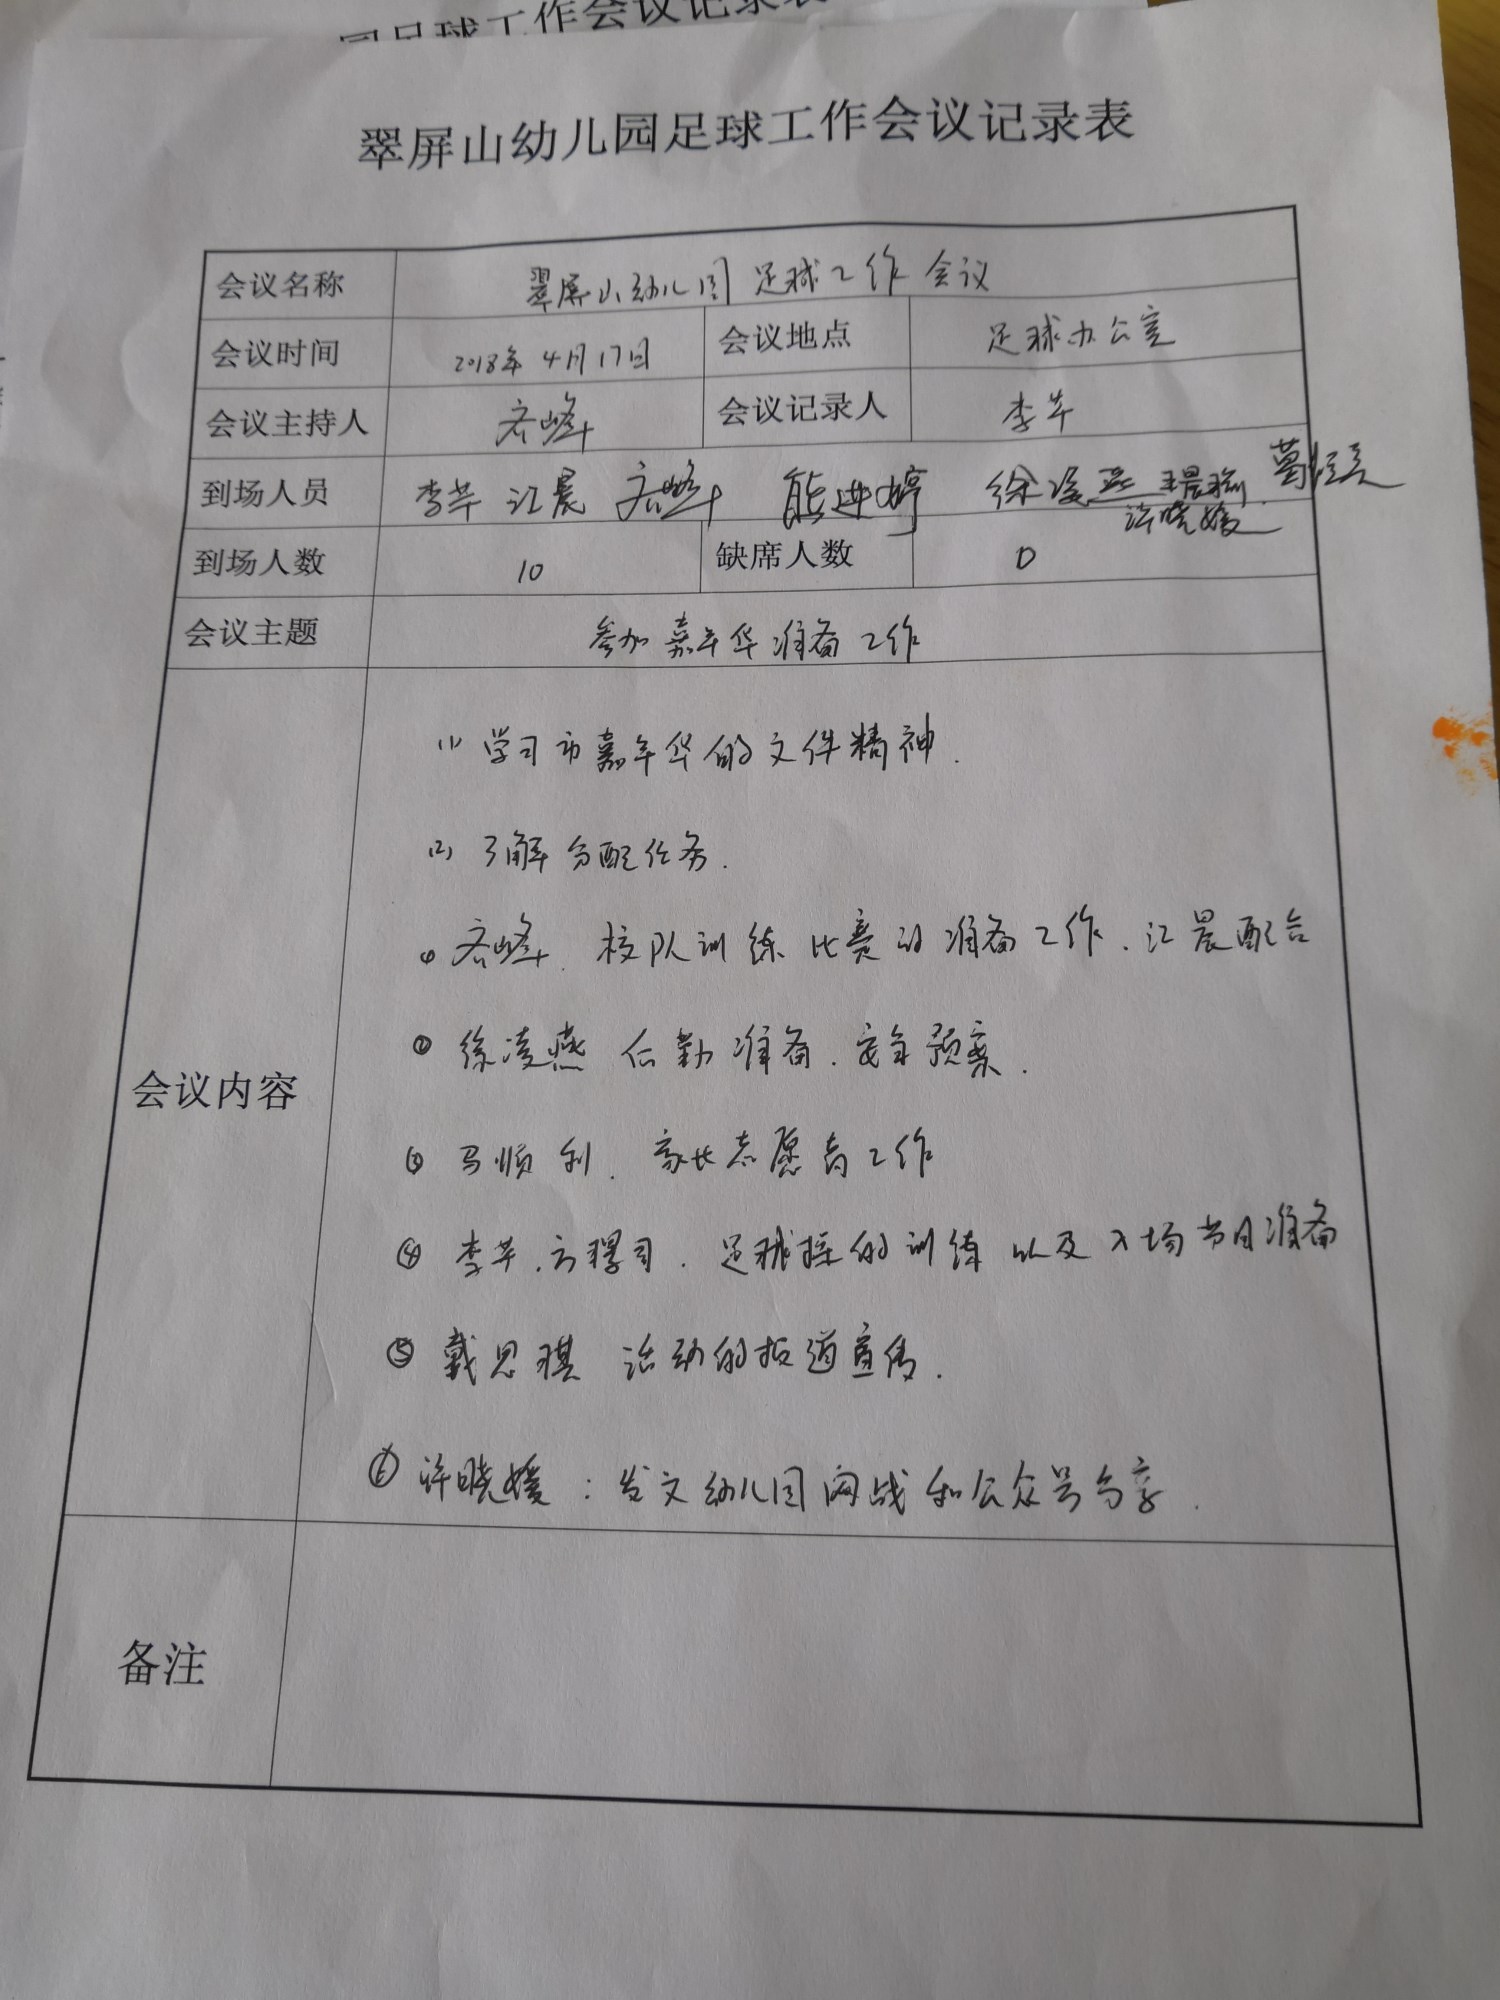 园足球工作会议记录表
翠屏山幼儿园足球工作会议记录表
会议名称 翠屏山幼儿园足球工作会议
会议时间 2018年4月17日 会议地点 足球办公室
会议主持人 齐峰 会议记录人 李芊
到场人员 李芊 江晨 齐峰 熊进婷 徐凌燕
许晓媛
到场人数 10 缺席人数 0
会议主题 参加嘉年华准备工作
(1) 学习市嘉年华的文件精神.
(2) 了解分配任务.
① 齐峰. 校队训练比赛的准备工作. 江晨配合
② 徐凌燕 后勤准备. 安全预案.
会议内容
③ 马顺利. 家长志愿者工作
④ 李芊. 足球操的训练以及入场节目准备
⑤ 戴思琪 活动的报道宣传.
⑥ 许晓媛: 发文幼儿园网战和公众号分享.
备注